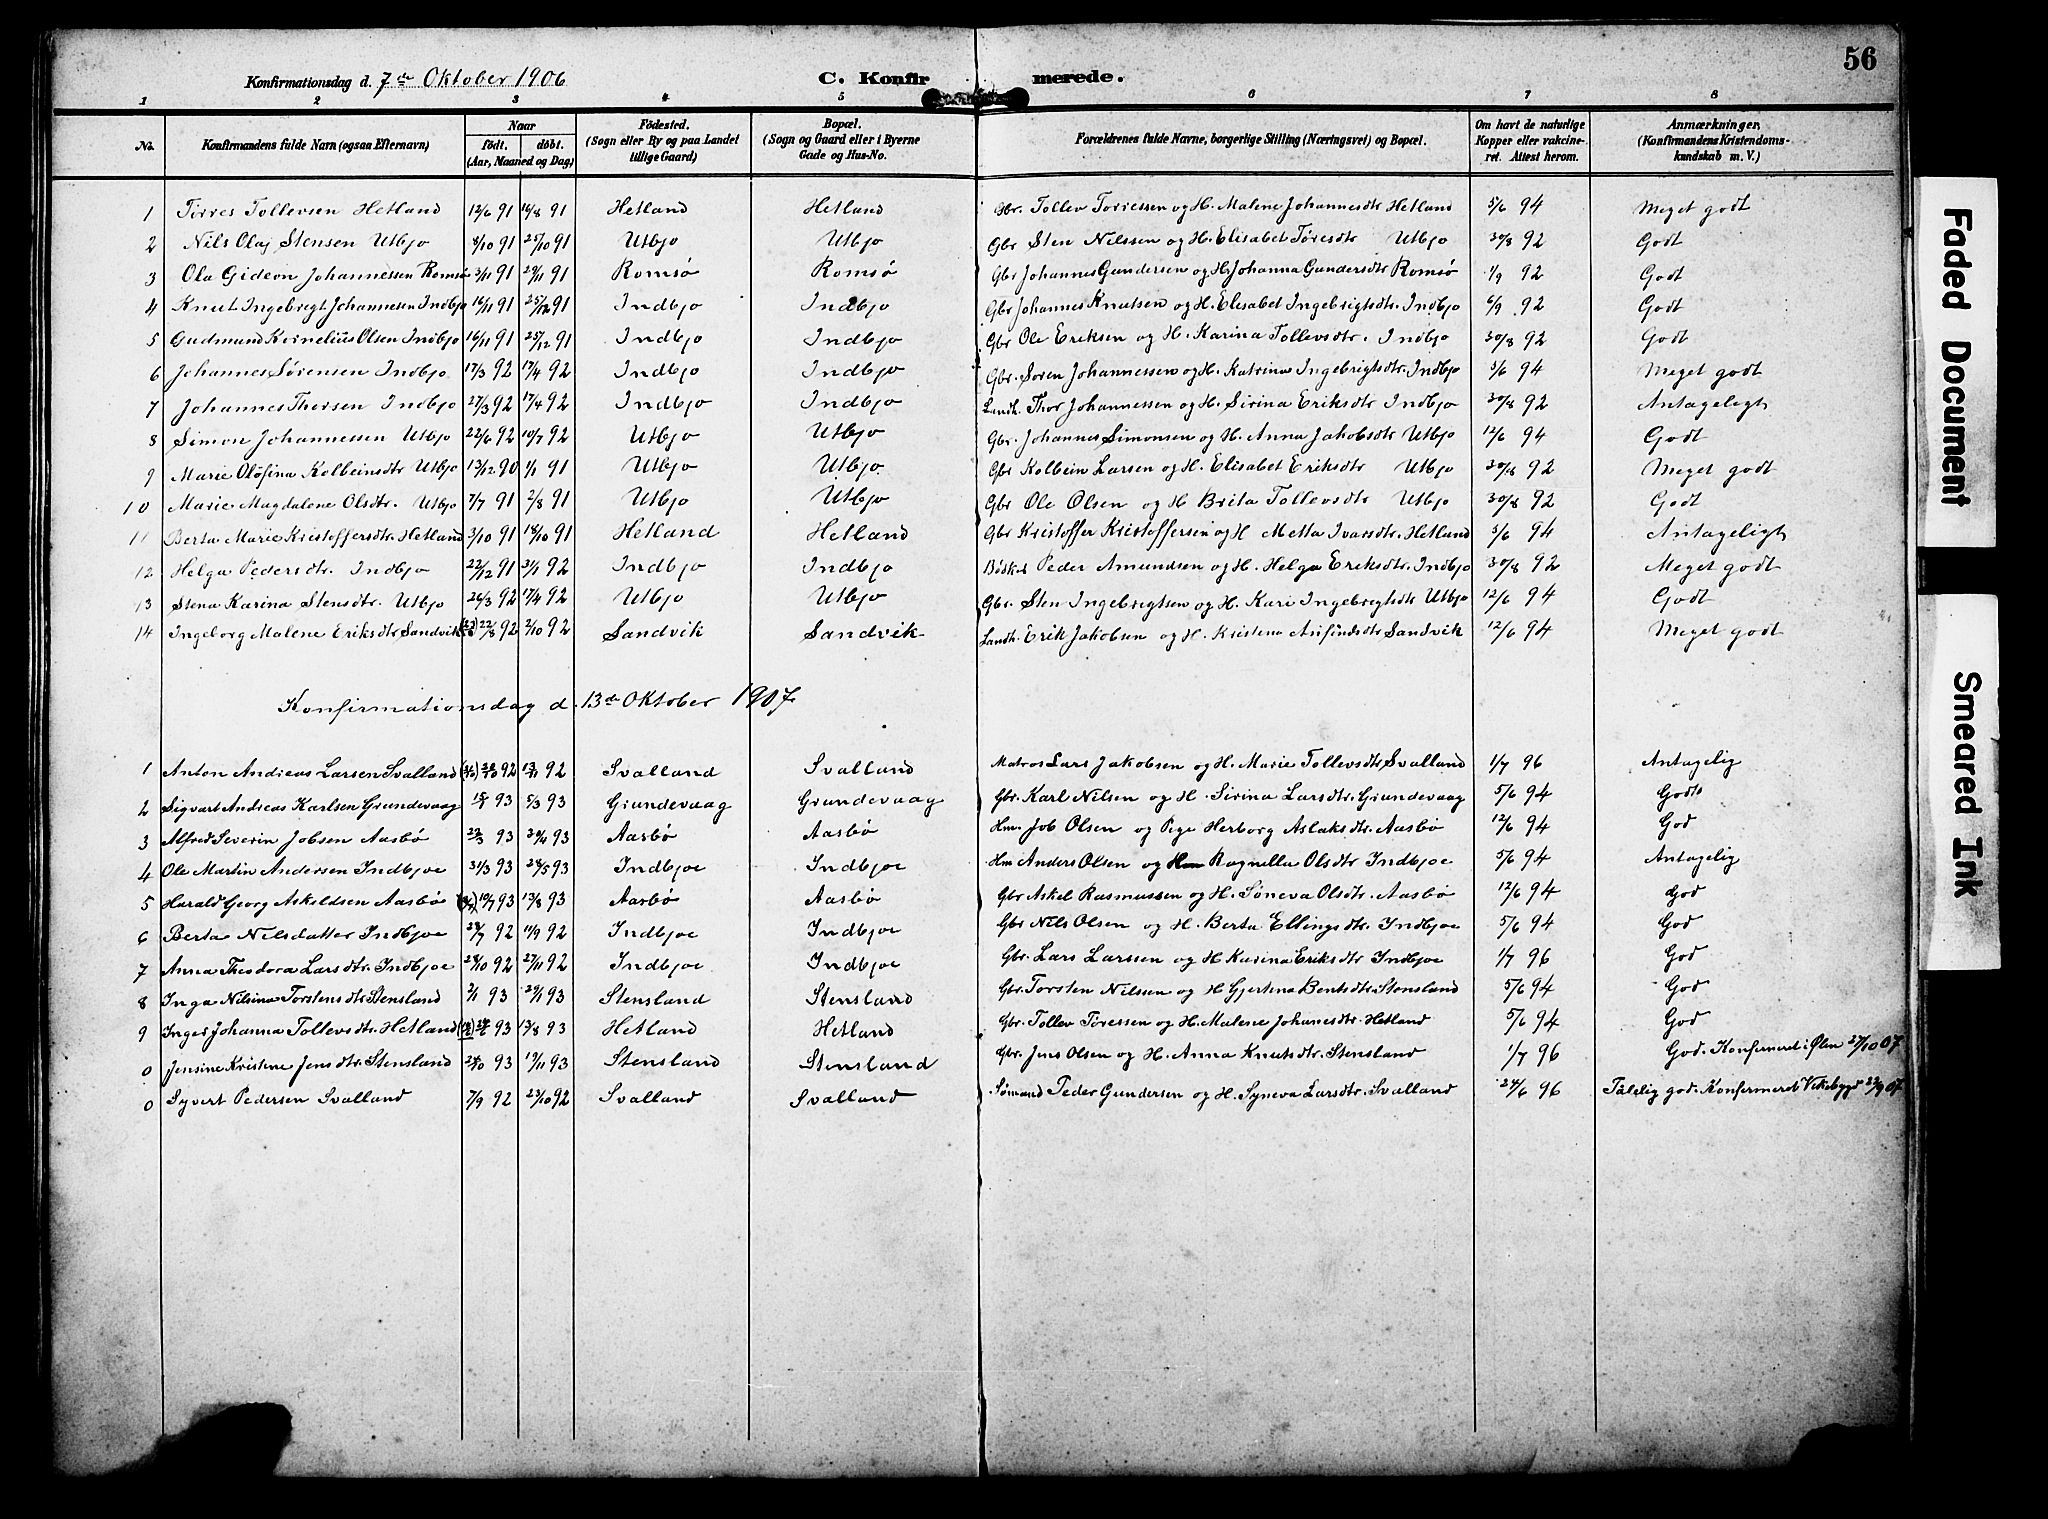 56
Konfirmationsdag d. 7de Oktober 1906 C. Konfirmerede.
1 2 3 4 5 6 7 8
No. Konfirmandens fulde Navn (ogsaa Efternavn) Naar födt. döbt. (Aar, Maaned og Dag) Födested. (Sogn eller By og paa Landet tillige Gaard) Bopæl. (Sogn og Gaard eller i Byerne Gade og Hus-No. Forældrenes fulde Navne, borgerlige Stilling (Næringsvei) og Bopæl. Om havt de naturlige Kopper eller vakcineret. Attest herom. Anmærkninger, (Konfirmandens Kristendomskundskab m. V.)
1 Torres Tollevsen Hetland 12/6 91 16/8 91 Hetland Hetland Gbr. Tollev Torressen og H. Malene Johannesdtr Hetland 5/6 94 Meget godt
2 Nils Olaj Stensen Utbjo 8/10 91 25/10 91 Utbjo Utbjo Gbr Sten Nilssen og H. Elisabet Töresdtr Utbjo 30/8 92 Godt
3 Ola Gideon Johannessen Romsö 3/11 91 29/11 91 Romsö Romsö Gbr Johannes Gundersen og H. Johanna Gundersdtr Romsö 1/9 92 Godt
4 Knut Ingebrigt Johannessen Indbjo 16/11 91 25/12 91 Indbjo Indbjo Gbr Johannes Knutsen og H. Elisabet Ingebrigtsdtr. Indbjo 6/9 92 Godt
5 Gudmund Kornelius Olsen Indbjo 16/11 91 25/12 91 Indbjo Indbjo Gbr Ole Eriksen og H. Karina Tollevsdtr. Indbjo 30/8 92 Godt
6 Johannes Sörensen Indbjo 17/3 92 17/4 92 Indbjo Indbjo Gbr. Sören Johannessen og H. Katrina Ingebrigtsdtr. Indbjo 5/6 94 Meget godt
7 Johannes Thorsen Indbjo 27/3 92 17/4 92 Indbjo Indbjo Landh. Thor Johannessen og H. Sirina Eriksdtr Indbjo 30/8 92 Antageligt
8 Simon Johannessen Utbjo 22/6 92 10/7 92 Utbjo Utbjo Gbr. Johannes Simonsen og H. Anna Jakobsdtr Utbjo 12/6 94 Godt
9 Marie Olöfina Kolbeinsdtr Utbjo 13/12 90 1/1 91 Utbjo Utbjo Gbr Kolbein Larsen og H. Elisabet Eriksdtr Utbjo 30/8 92 Meget godt
10 Marie Magdalene Olsdtr. Utbjo 7/7 91 2/8 91 Utbjo Utbjo Gbr Ole Olsen og H Brita Tollevsdtr Utbjo 30/8 92 Godt
11 Berta Marie Kristoffersdtr. Hetland 3/10 91 18/10 91 Hetland Hetland Gbr Kristoffer Kristoffersen og H Metta Ivarsdtr. Hetland 5/6 94 Antageligt
12 Helga Pedersdtr. Indbjo 22/12 91 3/1 92 Indbjo Indbjo Peder Amundsen og H. Helga Eriksdtr. Indbjo 30/8 92 Meget godt
13 Stena Karina Stensdtr. Utbjo 26/3 92 17/4 92 Utbjo Utbjo Gbr. Sten Ingebrigtsen og H. Kari Ingebrigtsdtr Utbjo 12/6 94 Godt
14 Ingeborg Malene Eriksdtr Sandvik 22/8 92 2/10 92 Sandvik Sandvik Landh. Erik Jakobsen og H. Kristena Anfindsdtr Sandvik 12/6 94 Meget godt
Konfirmationsdag d. 13de Oktober 1907
1 Anton Andreas Larsen Svalland 92 13/11 92 Svalland Svalland Matros Lars Jakobsen og H. Marie Tollevsdtr Svalland 1/7 96 Antagelig
2 Sigvart Andreas Karlsen Grundevaag 15/1 93 5/3 93 Grundevaag Grundevaag Gbr. Karl Nilsen og H. Sirina Larsdtr. Grundevaag 5/6 94 Godt
3 Alfred Severin Jobsen Aasbö 22/3 93 30/4 93 Aasbö Aasbö Hm. Job Olsen og Pige Herborg Aslaksdtr. Aasbö 12/6 94 God
4 Ole Martin Andersen Indbjoe 31/3 93 28/5 93 Indbjoe Indbjoe Hm Anders Olsen og H Ragnilla Olsdtr Indbjoe 5/6 94 Antagelig
5 Harald Georg Askeldsen Aasbö 10/7 93 13/8 93 Aasbö Aasbö Gbr Askel Rasmussen og H. Söneva Olsdtr. Aasbö 12/6 94 God
6 Berta Nilsdatter Indbjoe 28/7 92 11/9 92 Indbjoe Indbjoe Gbr Nils Olsen og H. Berta Ellingsdtr. Indbjoe 5/6 94 God
7 Anna Theodora Larsdtr. Indbjoe 28/10 92 27/11 92 Indbjoe Indbjoe Gbr. Lars Larssen og H Karina Eriksdtr Indbjoe 1/7 96 God
8 Inga Nilsina Torstensdtr Stensland 2/1 93 29/1 93 Stensland Stensland Gbr. Torsten Nilssen og H Gjertina Bentsdtr. Stensland 5/6 94 God
9 Inger Johanna Tollevsdtr. Hetland 93 13/8 93 Hetland Hetland Gbr. Tollev Töressen og H. Malene Johanesdtr. Hetland 5/6 94 God
0 Jensine Kristene Jensdtr. Stensland 93 19/11 93 Stensland Stensland Gbr. Jens Olsen og H. Anna Knutsdtr. Stensland 1/7 96 God. Konfermeret i Ølen 27/10 07
0 Syvert Pedersen Svalland 7/9 92 23/10 92 Svalland Svalland Sömand Peder Gundersen og H. Syneva Larsdtr. Svalland 24/6 96 Taalelig god. Konfermeret Vikebygd 22/9 07
Faded Document
Smeared Ink